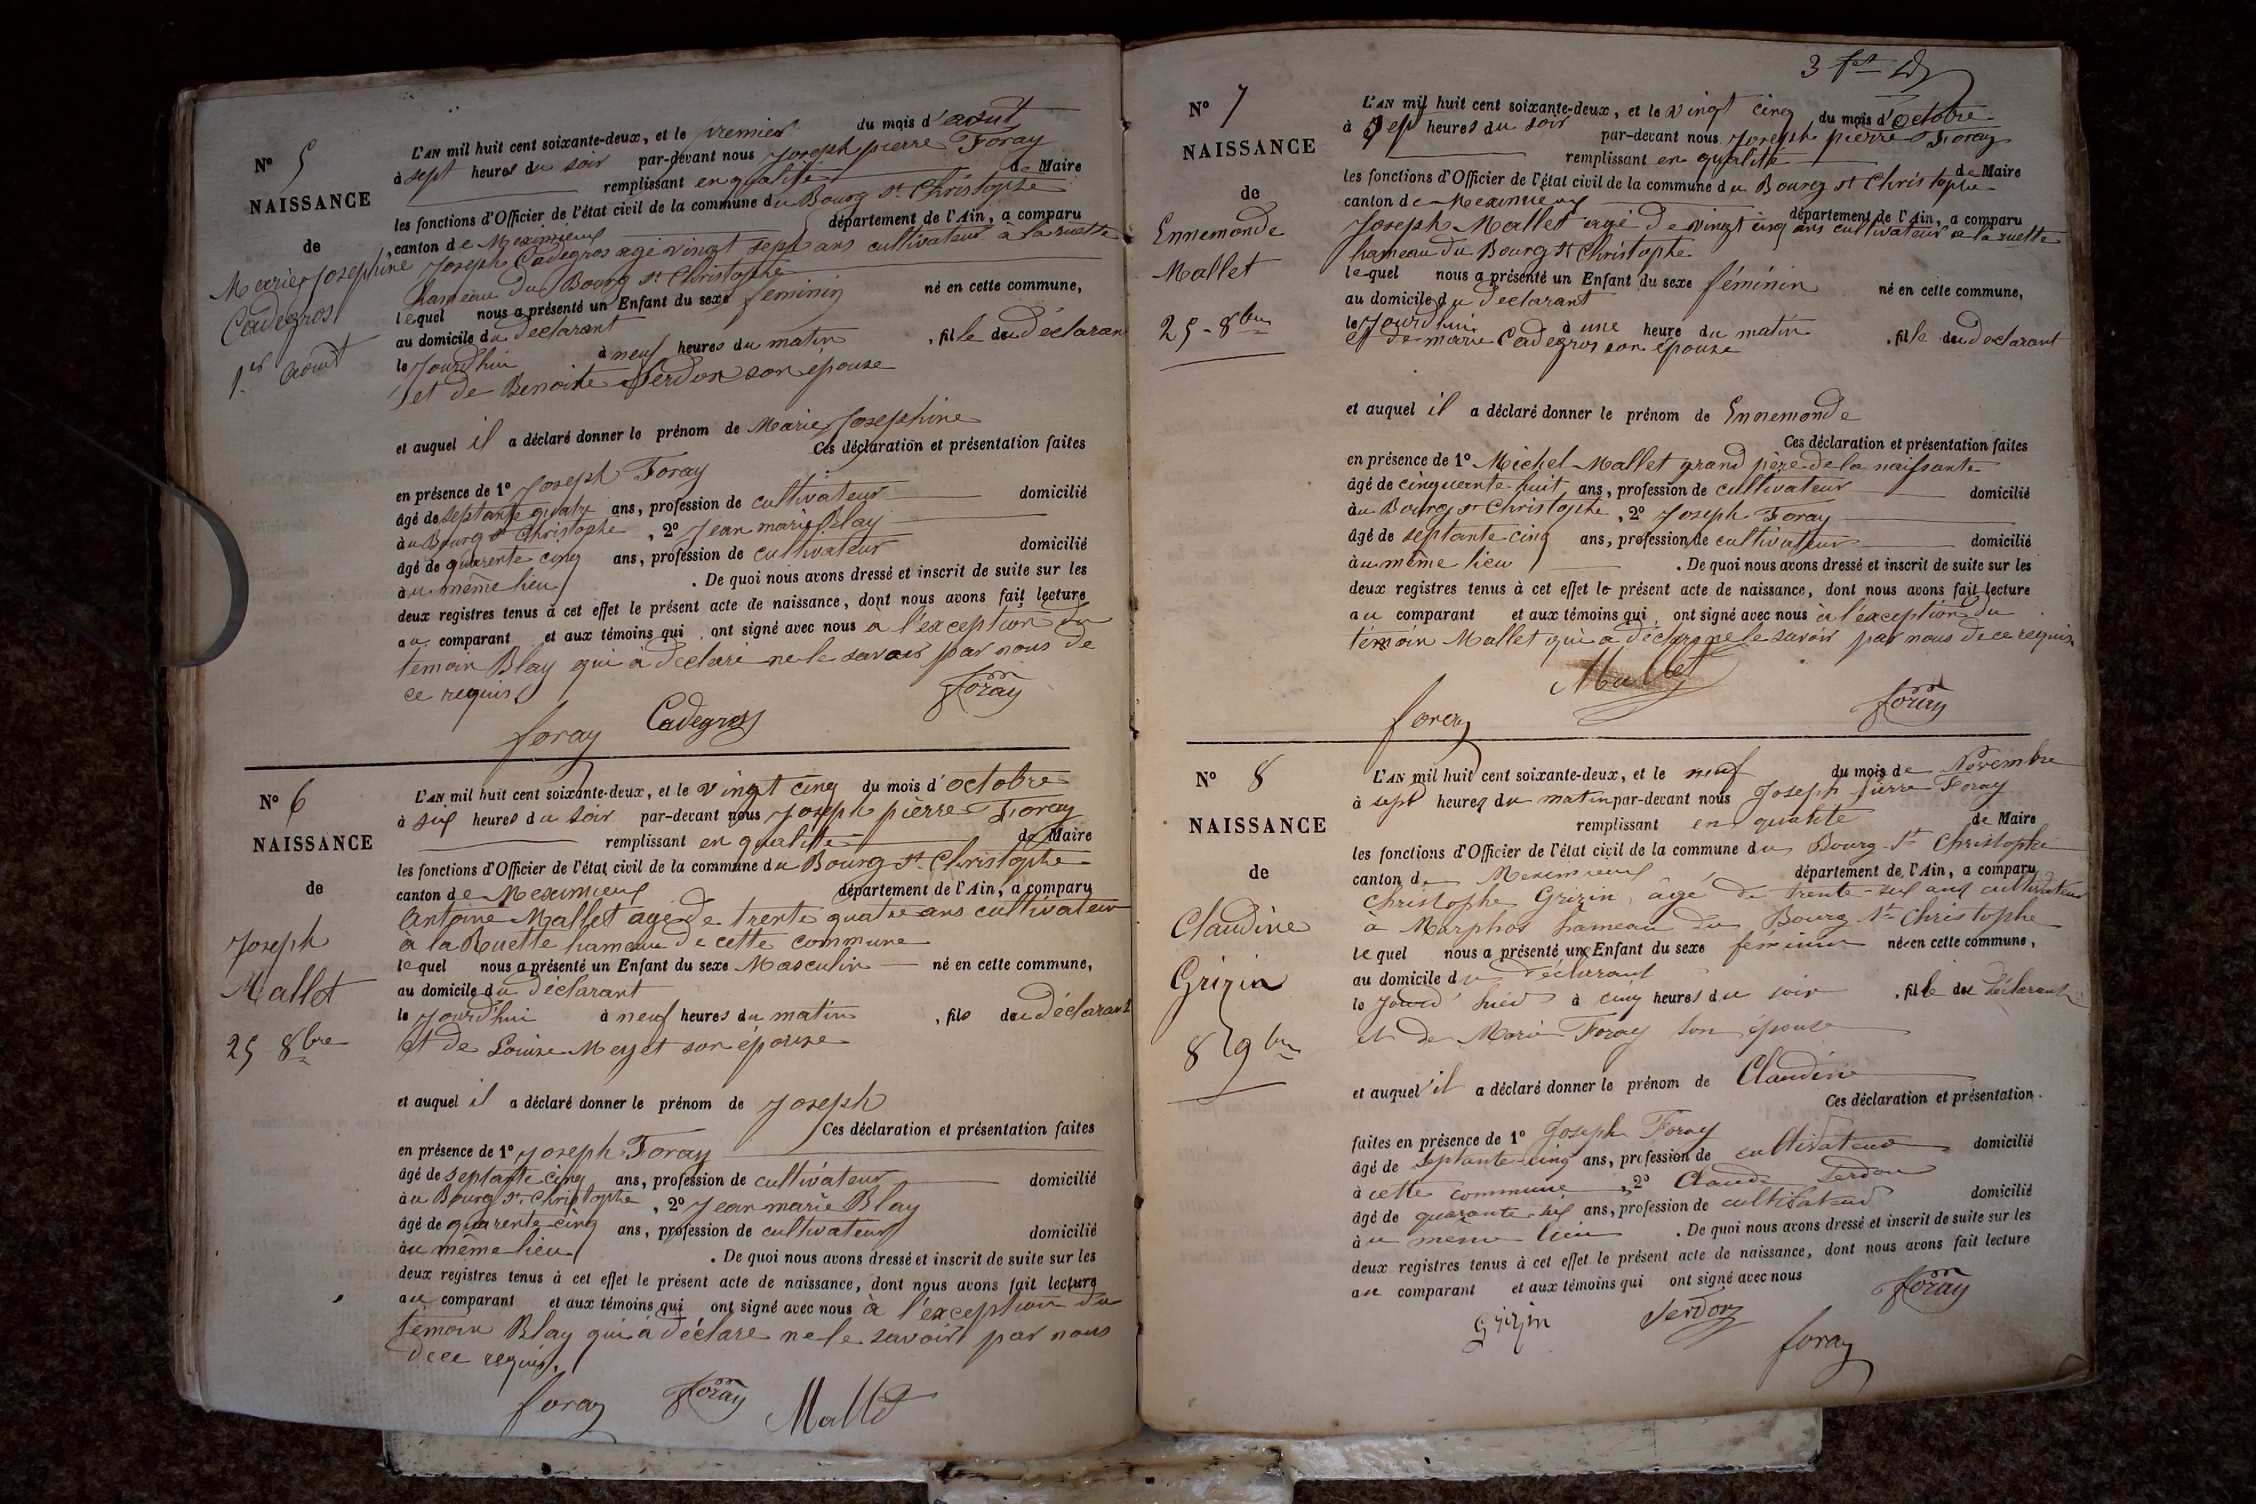 Nº 5
NAISSANCE
de
Marie Josephine
Cadegros
1er Aout
L'AN mil huit cent soixante-deux, et le premier du mois d'aout
à sept heures du soir par-devant nous Joseph pierre Foray
remplissant en qualité de Maire
les fonctions d'Officier de l'état civil de la commune du Bourg St Christophe
canton de Meximieux département de l'Ain, a comparu
Joseph Cadegros agé vingt sept ans cultivateur à la ruette
hameau du Bourg St Christophe
lequel nous a présenté un Enfant du sexe feminin né en cette commune,
au domicile du declarant
le Jourd'hui à neuf heures du matin, fille du déclarant
et de Benoite Serdon son épouse
et auquel il a déclaré donner le prénom de Marie Josephine
Ces déclaration et présentation faites
en présence de 1º Joseph Foray
âgé de septante quatre ans, profession de cultivateur domicilié
à u Bourg St Christophe, 2º Jean marie Blay
âgé de quarente cinq ans, profession de cultivateur domicilié
à u même lieu. De quoi nous avons dressé et inscrit de suite sur les
deux registres tenus à cet effet le présent acte de naissance, dont nous avons fait lecture
au comparant et aux témoins qui ont signé avec nous a l'exception du
temoin Blay qui à declaré ne le savoir par nous de
ce requis
foray Cadegros Foray
Nº 6
NAISSANCE
de
Joseph
Mallet
25 8bre
L'AN mil huit cent soixante-deux, et le vingt cinq du mois d'octobre
à six heures du soir par-devant nous Joseph pierre Foray
remplissant en qualité de Maire
les fonctions d'Officier de l'état civil de la commune du Bourg St Christophe
canton de Meximieux département de l'Ain, a comparu
Antoine Mallet agé de trente quatre ans cultivateur
à la Ruette hameau de cette commune
lequel nous a présenté un Enfant du sexe Masculin né en cette commune,
au domicile du déclarant
le Jourd'hui à neuf heures du matin, fils du déclarant
et de Louise Meyet son épouse
et auquel il a déclaré donner le prénom de Joseph
Ces déclaration et présentation faites
en présence de 1º Joseph Foray
âgé de septante cinq ans, profession de cultivateur domicilié
à u Bourg St Christophe, 2º Jean marie Blay
âgé de quarente-cinq ans, profession de cultivateur domicilié
à u même lieu. De quoi nous avons dressé et inscrit de suite sur les
deux registres tenus à cet effet le présent acte de naissance, dont nous avons fait lecture
au comparant et aux témoins qui ont signé avec nous à l'exception du
témoin Blay qui à déclaré ne le savoir par nous
de ce requis.
foray Foray Mallet
3 fet
Nº 7
NAISSANCE
de
Ennemonde
Mallet
25 - 8bre
L'AN mil huit cent soixante-deux, et le vingt cinq du mois d'Octobre
à Sept heures du soir par-devant nous Joseph pierre Foray
remplissant en qualité de Maire
les fonctions d'Officier de l'état civil de la commune du Bourg St Christophe
canton de Meximieux département de l'Ain, a comparu
Joseph Mallet agé de vingt cinq ans cultivateur a la ruette
hameau du Bourg St Christophe
lequel nous a présenté un Enfant du sexe féminin né en cette commune,
au domicile du declarant
le Jourd'hui à une heure du matin, fille du declarant
et de marie Cadegros son épouse
et auquel il a déclaré donner le prénom de Ennemonde
Ces déclaration et présentation faites
en présence de 1º Michel Mallet grand père de la naissante
âgé de cinquante huit ans, profession de cultivateur domicilié
à u Bourg St Christophe, 2º Joseph Foray
âgé de septante cinq ans, profession de cultivateur domicilié
à u même lieu. De quoi nous avons dressé et inscrit de suite sur les
deux registres tenus à cet effet le présent acte de naissance, dont nous avons fait lecture
au comparant et aux témoins qui ont signé avec nous à l'exception du
témoin Mallet qui a déclaré ne le savoir par nous de ce requis
Mallet
foray Foray
Nº 8
NAISSANCE
de
Claudine
Grizin
8 9bre
L'AN mil huit cent soixante-deux, et le neuf du mois de Novembre
à sept heures du matin par-devant nous Joseph pierre Foray
remplissant en qualité de Maire
les fonctions d'Officier de l'état civil de la commune du Bourg St Christophe
canton de Meximieux département de l'Ain, a comparu
Christophe Grizin, âgé de trente-six ans cultivateur
à Marphos hameau du Bourg St Christophe
lequel nous a présenté un Enfant du sexe féminin né en cette commune,
au domicile du déclarant
le Jourd'hier à cinq heures du soir, fille du déclarant
et de Marie Foray son épouse
et auquel il a déclaré donner le prénom de Claudine
Ces déclaration et présentation
faites en présence de 1º Joseph Foray
âgé de septante-cinq ans, profession de cultivateur domicilié
à cette commune, 2º Claude Serdon
âgé de quarante-six ans, profession de cultivateur domicilié
à u meme lieu. De quoi nous avons dressé et inscrit de suite sur les
deux registres tenus à cet effet le présent acte de naissance, dont nous avons fait lecture
au comparant et aux témoins qui ont signé avec nous
Grizin Serdon Foray
foray